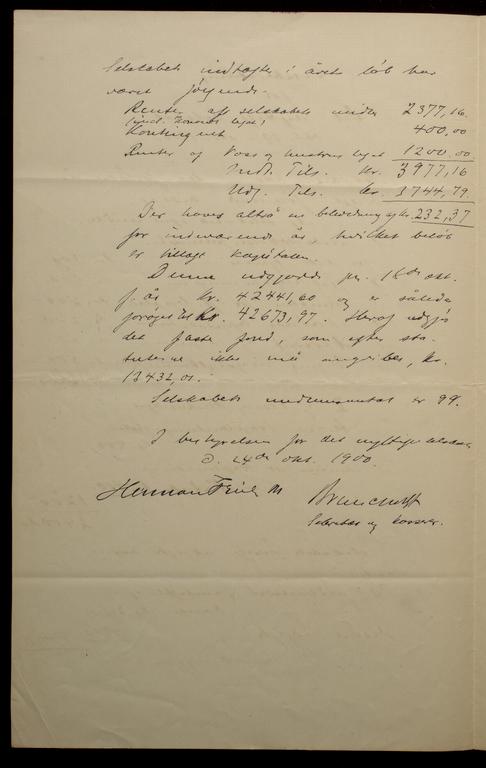 Selskabets indtægter i årets løb har
været følgende.
Renter af selskabets midler 2377,16
(incl. legat)
Kontingent 400.00
Renter af Voss og hustrus legat 1200.00
Indt. Tils. Kr. 3977,16
Udg. Tils. kr. 3744,79.
Der haves altså en beholdning af kr. 232,37
for indeværende år, hvilket beløb
er tillagt kapitalen.
Denne udgjorde pr. okt.
f. år kr. 42441,60 og er således
forøget til Kr. 42673,97. Heraf udgjør
det faste fond, som efter sta-
tuterne ikke må angribes, kr.
13432,01.
Selskabets medlemsantal er 99.
I bestyrelsen for det nyttige selskab
d. 24de okt. 1900.
Herman
Sekretær og kasserer.